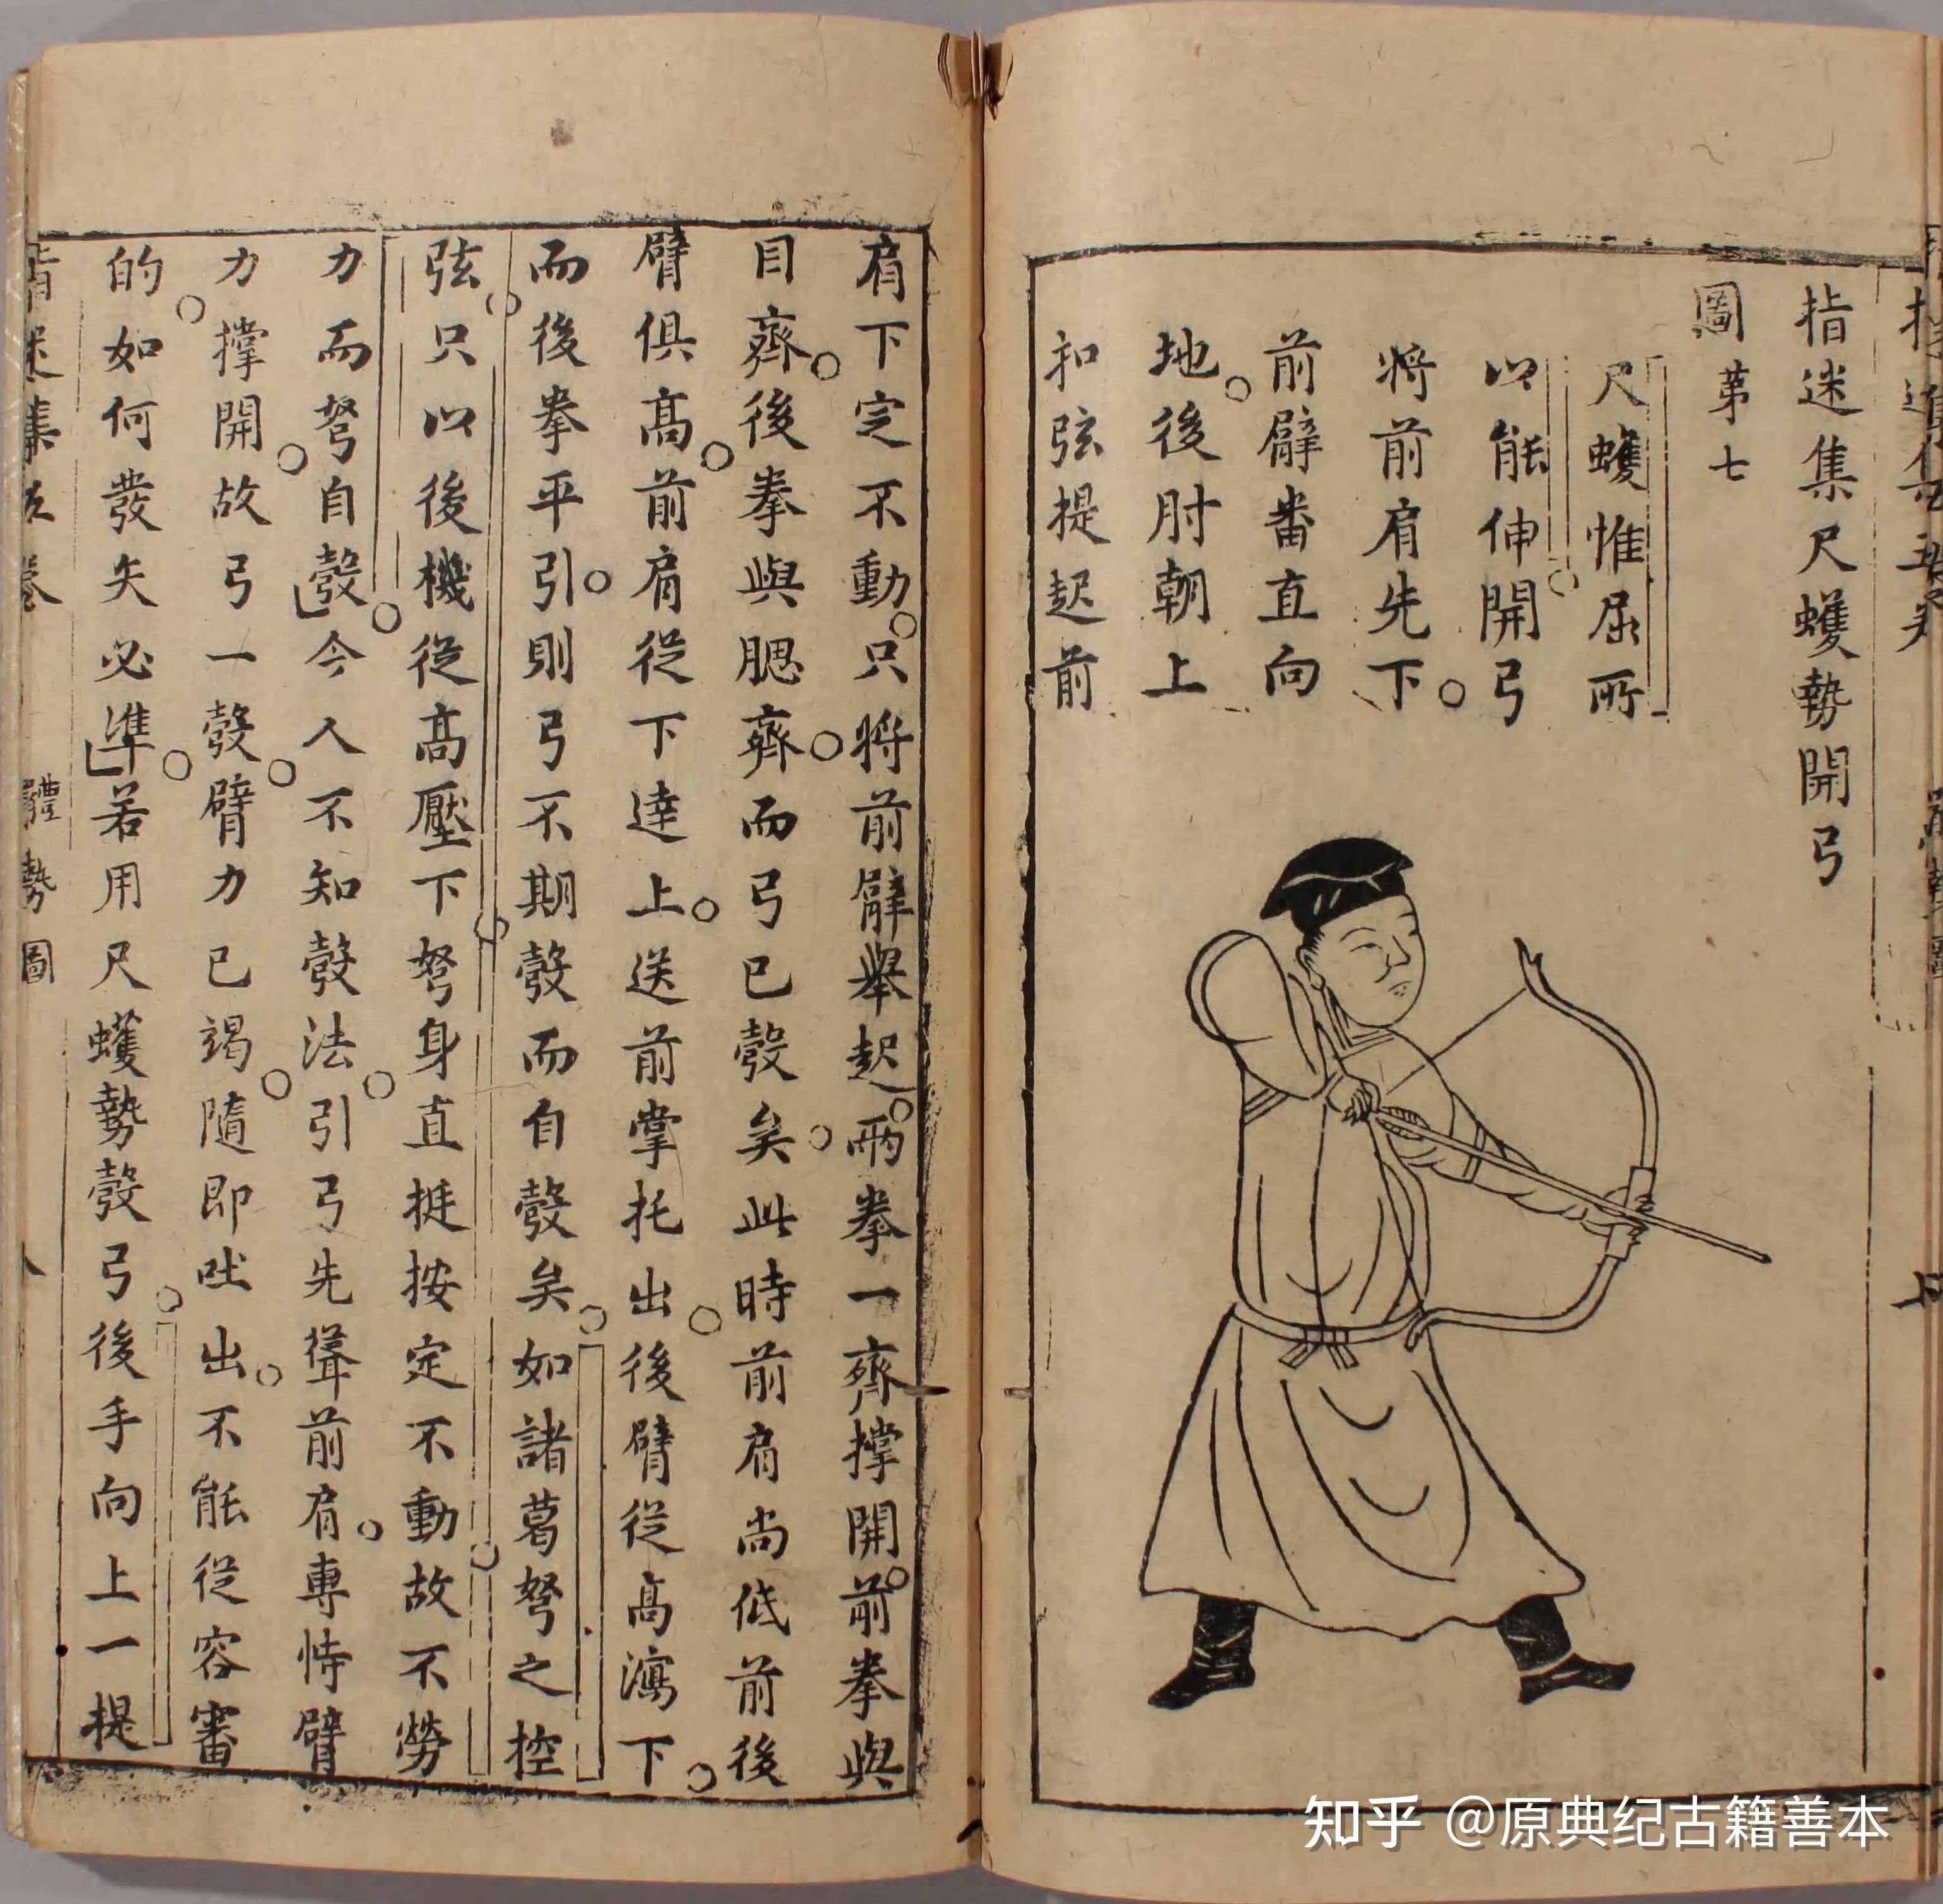 指迷集尺蠖勢開弓
圖第七
尺蠖惟屈所
以能伸開弓
將前肩先下
前臂番直向
地後肘朝上
和弦提起前
肩下定不動只將前臂舉起兩拳一齊撐開前拳與
目齊後拳與腮齊而弓已彀矣此時前肩尚低前後
臂俱高前肩從下達上送前掌托出後臂從高瀉下
而後拳平引則弓不期彀而自彀矣如諸葛弩之控
弦只以後機從高壓下弩身直挺按定不動故不勞
力而弩自彀今人不知彀法引弓先聳前肩專恃臂
力撐開故弓一彀臂力已竭隨即吐出不能從容審
的如何發矢必準若用尺蠖勢彀弓後手向上一提
體勢圖
知乎 @原典纪古籍善本